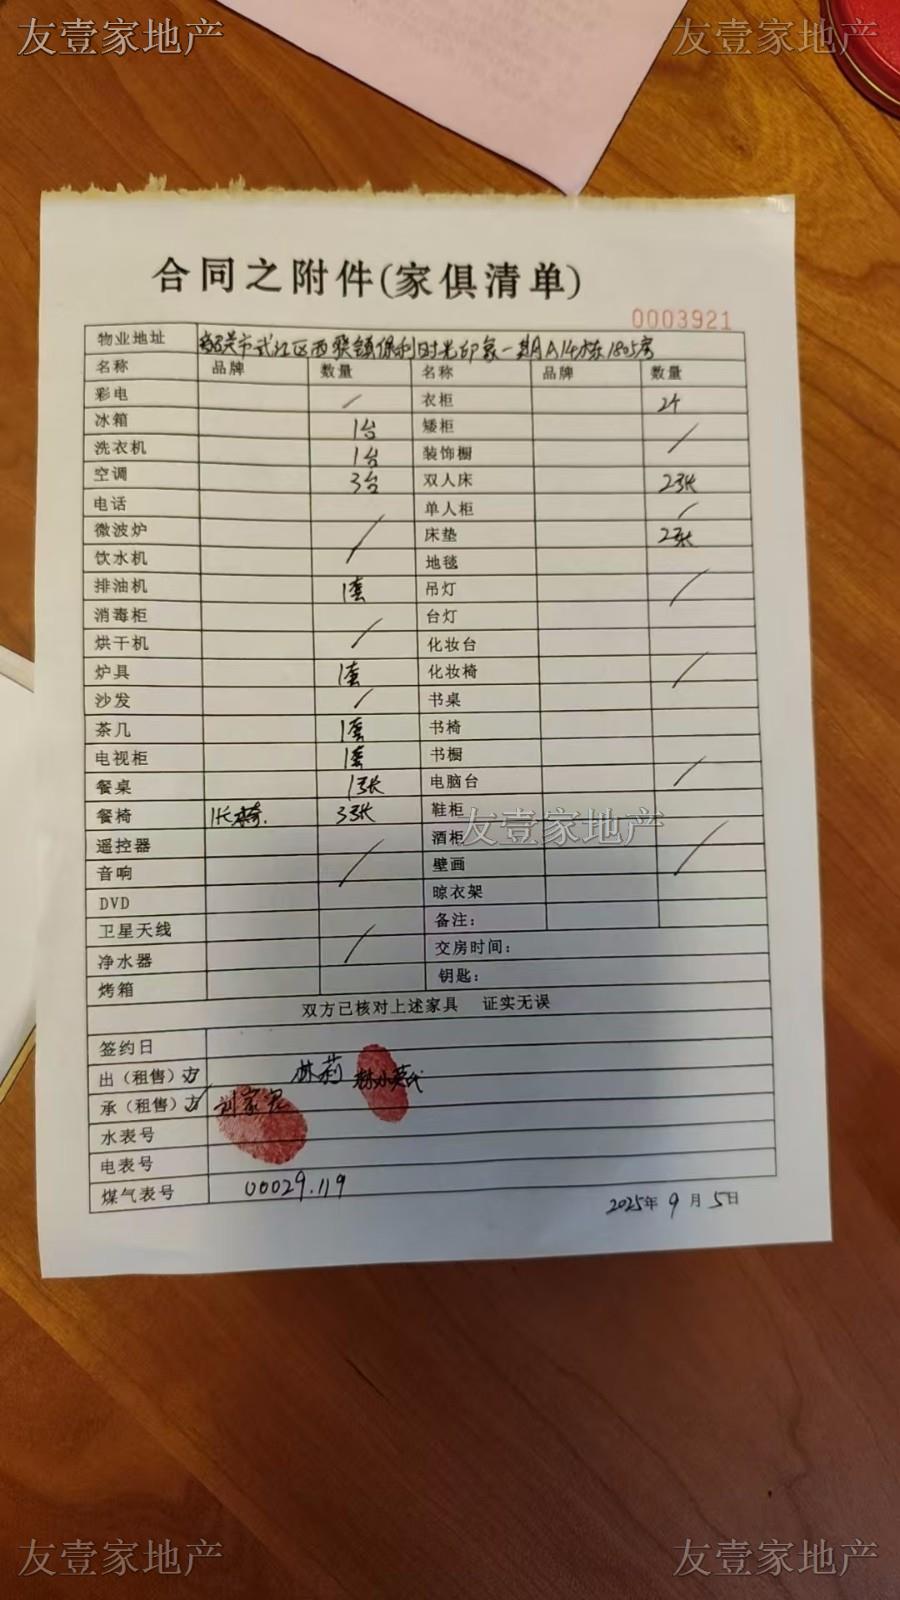 友壹家地产 友壹家地产
合同之附件(家俱清单)
0003921
物业地址 韶关市武江区西联镇保利时光印象一期A14栋1805房
名称 品牌 数量 名称 品牌 数量
彩电 / 衣柜 2个
冰箱 1台 矮柜
洗衣机 1台 装饰橱 /
空调 3台 双人床 2张
电话 单人柜 /
微波炉 / 床垫 2张
饮水机 地毯
排油机 1套 吊灯 /
消毒柜 台灯
烘干机 / 化妆台
炉具 1套 化妆椅 /
沙发 / 书桌
茶几 1套 书椅
电视柜 1套 书橱
餐桌 1张 电脑台 /
餐椅 1长椅. 3张 鞋柜
友壹家地产
遥控器 酒柜
音响 / 壁画 /
DVD 晾衣架
卫星天线 备注：
净水器 / 交房时间：
烤箱 钥匙：
双方已核对上述家具 证实无误
签约日
出（租售）方 林莉
承（租售）方 刘家宏
水表号
电表号
煤气表号 00029.119
2025年9月5日
友壹家地产 友壹家地产